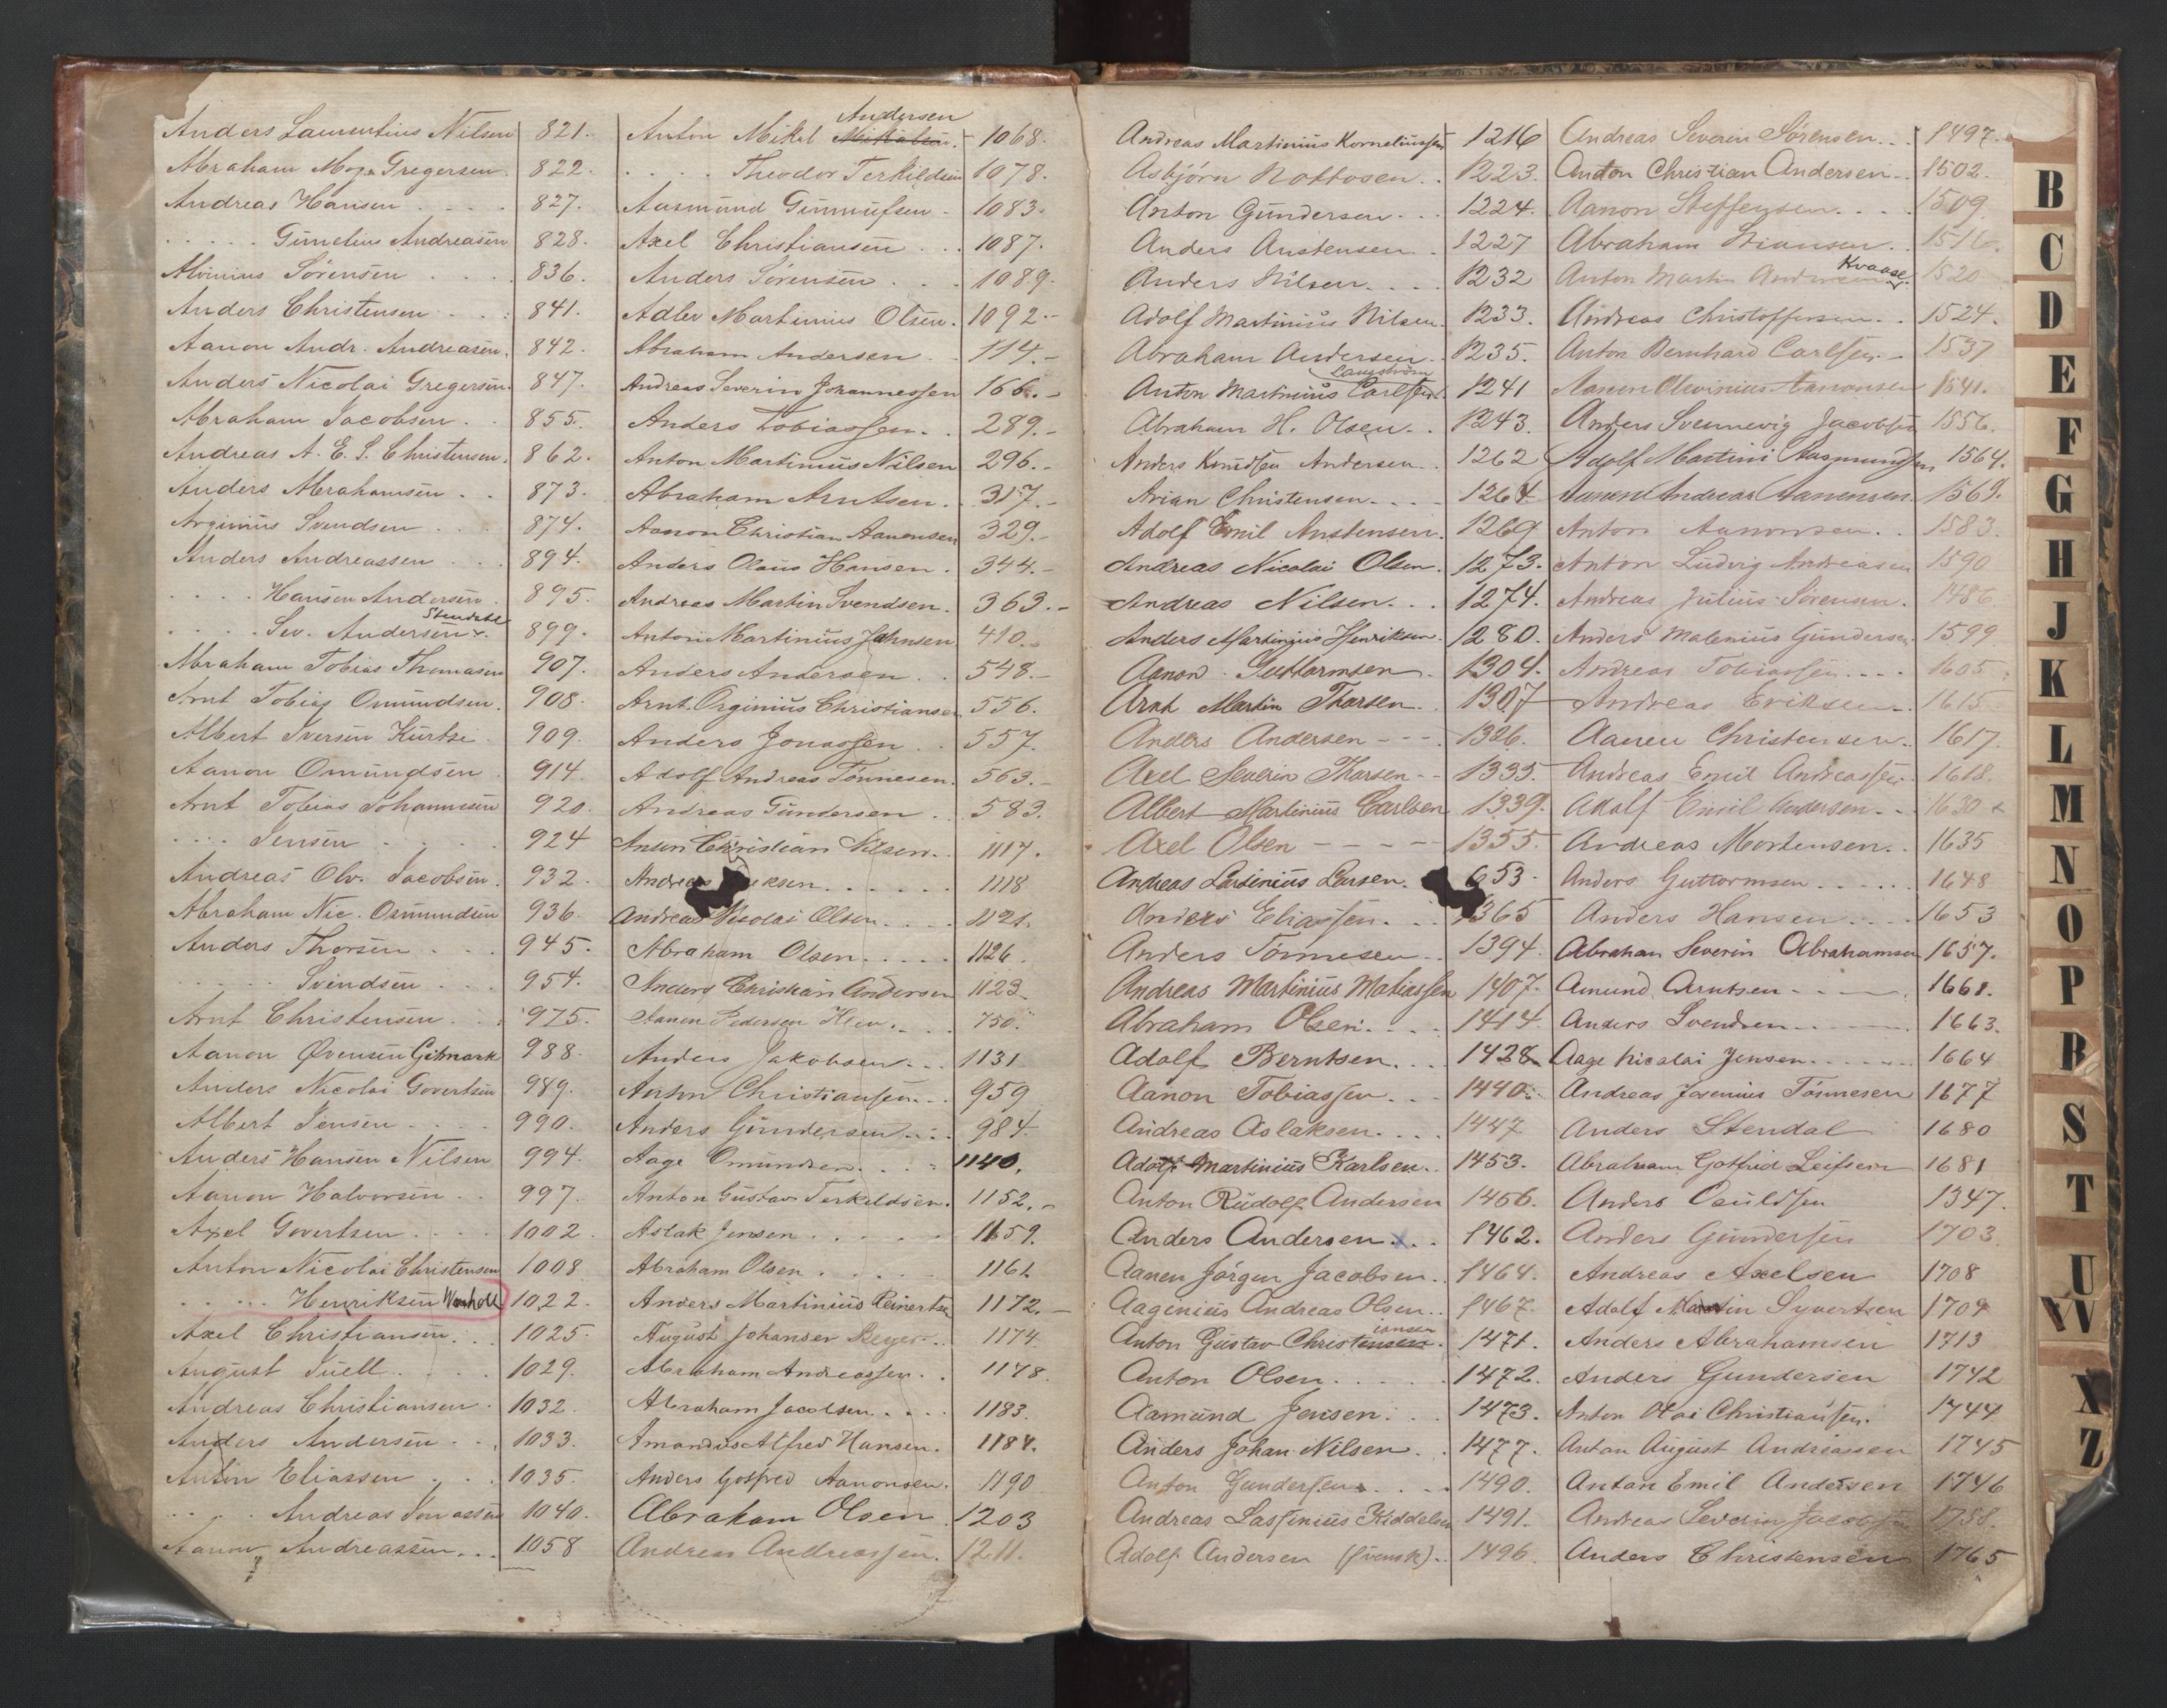 Anders Laurentius Nilsen 821.
Abraham Gregersen 822.
Andreas Hansen 827.
Andreasen 828.
Sörensen 836.
Anders Christensen 841.
Aanon Andr. Andreasen 842.
Anders Nicolai Gregersen 847.
Abraham Jacobsen 855.
Andreas A. E. S. Christensen 862.
Anders Abrahamsen 873.
Svendsen 874.
Anders Andreassen 894.
Hansen Andersen 895.
Stendahl
Sev. Andersen 899.
Abraham Tobias Thomasen 907.
Arnt Tobias Omundsen 908.
Albert Iversen 909.
Aanon Omundsen 914.
Arnt Tobias Johannesen 920.
Jensen 924
Andreas Olv. Jacobsen 932.
Abraham Nic. Osmundsen 936.
Anders Thorsen 945.
Svendsen 954.
Arnt Christensen 975.
Aanon Øvensen Gitmark 988.
Anders Nicolai Govertsen 989.
Albert Jensen 990.
Anders Hansen Nilsen 994.
Aanon Halvorsen 997.
Axel Govertsen 1002.
Anton Nicolai Christensen 1008
Henriksen 1022.
Axel Christiansen 1025.
August Juell 1029.
Andreas Christiansen 1032.
Anders Andersen 1033.
Anton Eliassen 1035.
Andreas Jonassen 1040.
Aanon Andreassen 1058
Andersen
Anton Mikal 1068.
Theodor Terkildsen 1078.
Aasmund Gunnufsen 1083.
Axel Christiansen 1087.
Anders Sörensen 1089.
Adler Martinius Olsen 1092.
Abraham Andersen 114.
Andreas Severin Johannessen 166.
Anders Tobiassen 289.
Anton Martinius Nilsen 296.
Abraham Arntsen 317.
Aanon Christian Aanensen 329.
Anders Olaus Hansen 344.
Andreas Martin Svendsen 363.
Anton Martinius Jahnsen 410.
Anders Andersen 548.
Arnt Orginius Christiansen 556.
Anders Jonassen 557.
Adolf Andreas Tönnesen 563.
Andreas Gundersen 583.
Christian Nilsen 1117.
Andreas 1118
Andreas Nicolai Olsen 1121.
Abraham Olsen 1126.
Anders Christian Andersen 1123
Aanen Pedersen 750.
Anders Jakobsen 1131
Anton Christiansen 959
Anders Gundersen 984.
Aage Omundsen 1140.
Anton Gustav Terkeldsen 1152.
Aslak Jensen 1159.
Abraham Olsen 1161.
Anders Martinius Reinertsen 1172.
August Johansen Beyer 1174
Abraham Andreassen 1178.
Abraham Jacobsen 1183.
Amandus Alfred Hansen 1184.
Anders Gotfred Aanonsen 1190
Abraham Olsen 1203
Andreas Andreassen 1211.
Andreas Martinius Korneliussen 1216
Asbjörn 1223.
Anton Gundersen 1224.
Anders Austensen 1227
Anders Nilsen 1232
Adolf Martinius Nilsen 1233.
Abraham Andersen 1235.
Langström
Anton Martinius Carlsen 1241
Abraham H. Olsen 1243.
Anders Knudsen Andersen 1262
Arian Christensen 1264
Adolf Emil Austensen 1269
Andreas Nicolai Olsen 1273.
Andreas Nilsen 1274.
Anders Martinius Henriksen 1280.
Aanon Guttormsen 1304.
Arnt Martin Thorsen 1307
Anders Andersen 1326.
Axel Severin Thorsen 1335.
Albert Martinius Carlsen 1339.
Axel Olsen 1355.
Andreas Larsen 653
Anders Eliassen 1365
Anders Tönnesen 1394.
Andreas Martinius Matiassen 1407.
Abraham Olsen 1414
Adolf Berntsen 1428
Aanon Tobiassen 1440.
Andreas Aslaksen 1447
Adolf Martinius Karlsen 1453.
Anton Rudolf Andersen 1456.
Anders Andersen 1462.
Aanen Jörgen Jacobsen 1464.
Aagenius Andreas Olsen 1467.
iansen
Anton Gustav Christensen 1471.
Anton Olsen 1472.
Aamund Jensen 1473.
Anders Johan Nilsen 1477.
Anton Gundersen 1490.
Andreas Lassinius Kiddelsen 1491.
Adolf Andersen (svensk) 1496.
Andreas Severin Sörensen 1497.
Anton Christian Andersen 1502.
Aanon Steffensen 1509
Abraham 1516.
Kvaase
Anton Martin Andersen 1520
Andreas Christoffersen 1524.
Anton Bernhard Carlsen 1537
Aanen Olvinius Aanonsen 1541.
Anders Svennevig Jacobsen 1556.
Adolf Martini Aasmundsen 1564.
Aanen Andreas Aanensen 1569.
Anton Aanonsen 1583.
Anton Ludvig Andreasen 1590
Andreas Julius Sörensen 1486
Anders Malenius Gundersen 1599
Andreas Tobiassen 1605
Andreas Eriksen 1615
Aanen Christensen 1617.
Andreas Emil Andreassen 1618.
Adolf Emil Andersen 1630
Andreas Mortensen 1635
Anders Guttormsen 1648
Anders Hansen 1653
Abraham Severin Abrahamsen 1657.
Amund Arntsen 1661.
Anders Svendsen 1663.
Aage Nicolai Jensen 1664
Andreas Josenius Tönnesen 1677
Anders Stendal 1680
Abraham Gotfried Leifsen 1681
Anders 1347.
Anders Gundersen 1703
Andreas Axelsen 1708
Adolf Martin Syvertsen 1709
Anders Abrahamsen 1713
Anders Gundersen 1742
Anton Olai Christiansen 1744
Anton August Andreassen 1745
Anton Emil Andersen 1746
Andreas Severin Jacobsen 1758.
Anders Christensen 1765
B
C
D
E
F
G
H
J
K
L
M
N
O
P
R
S
T
U
VW
X
Z